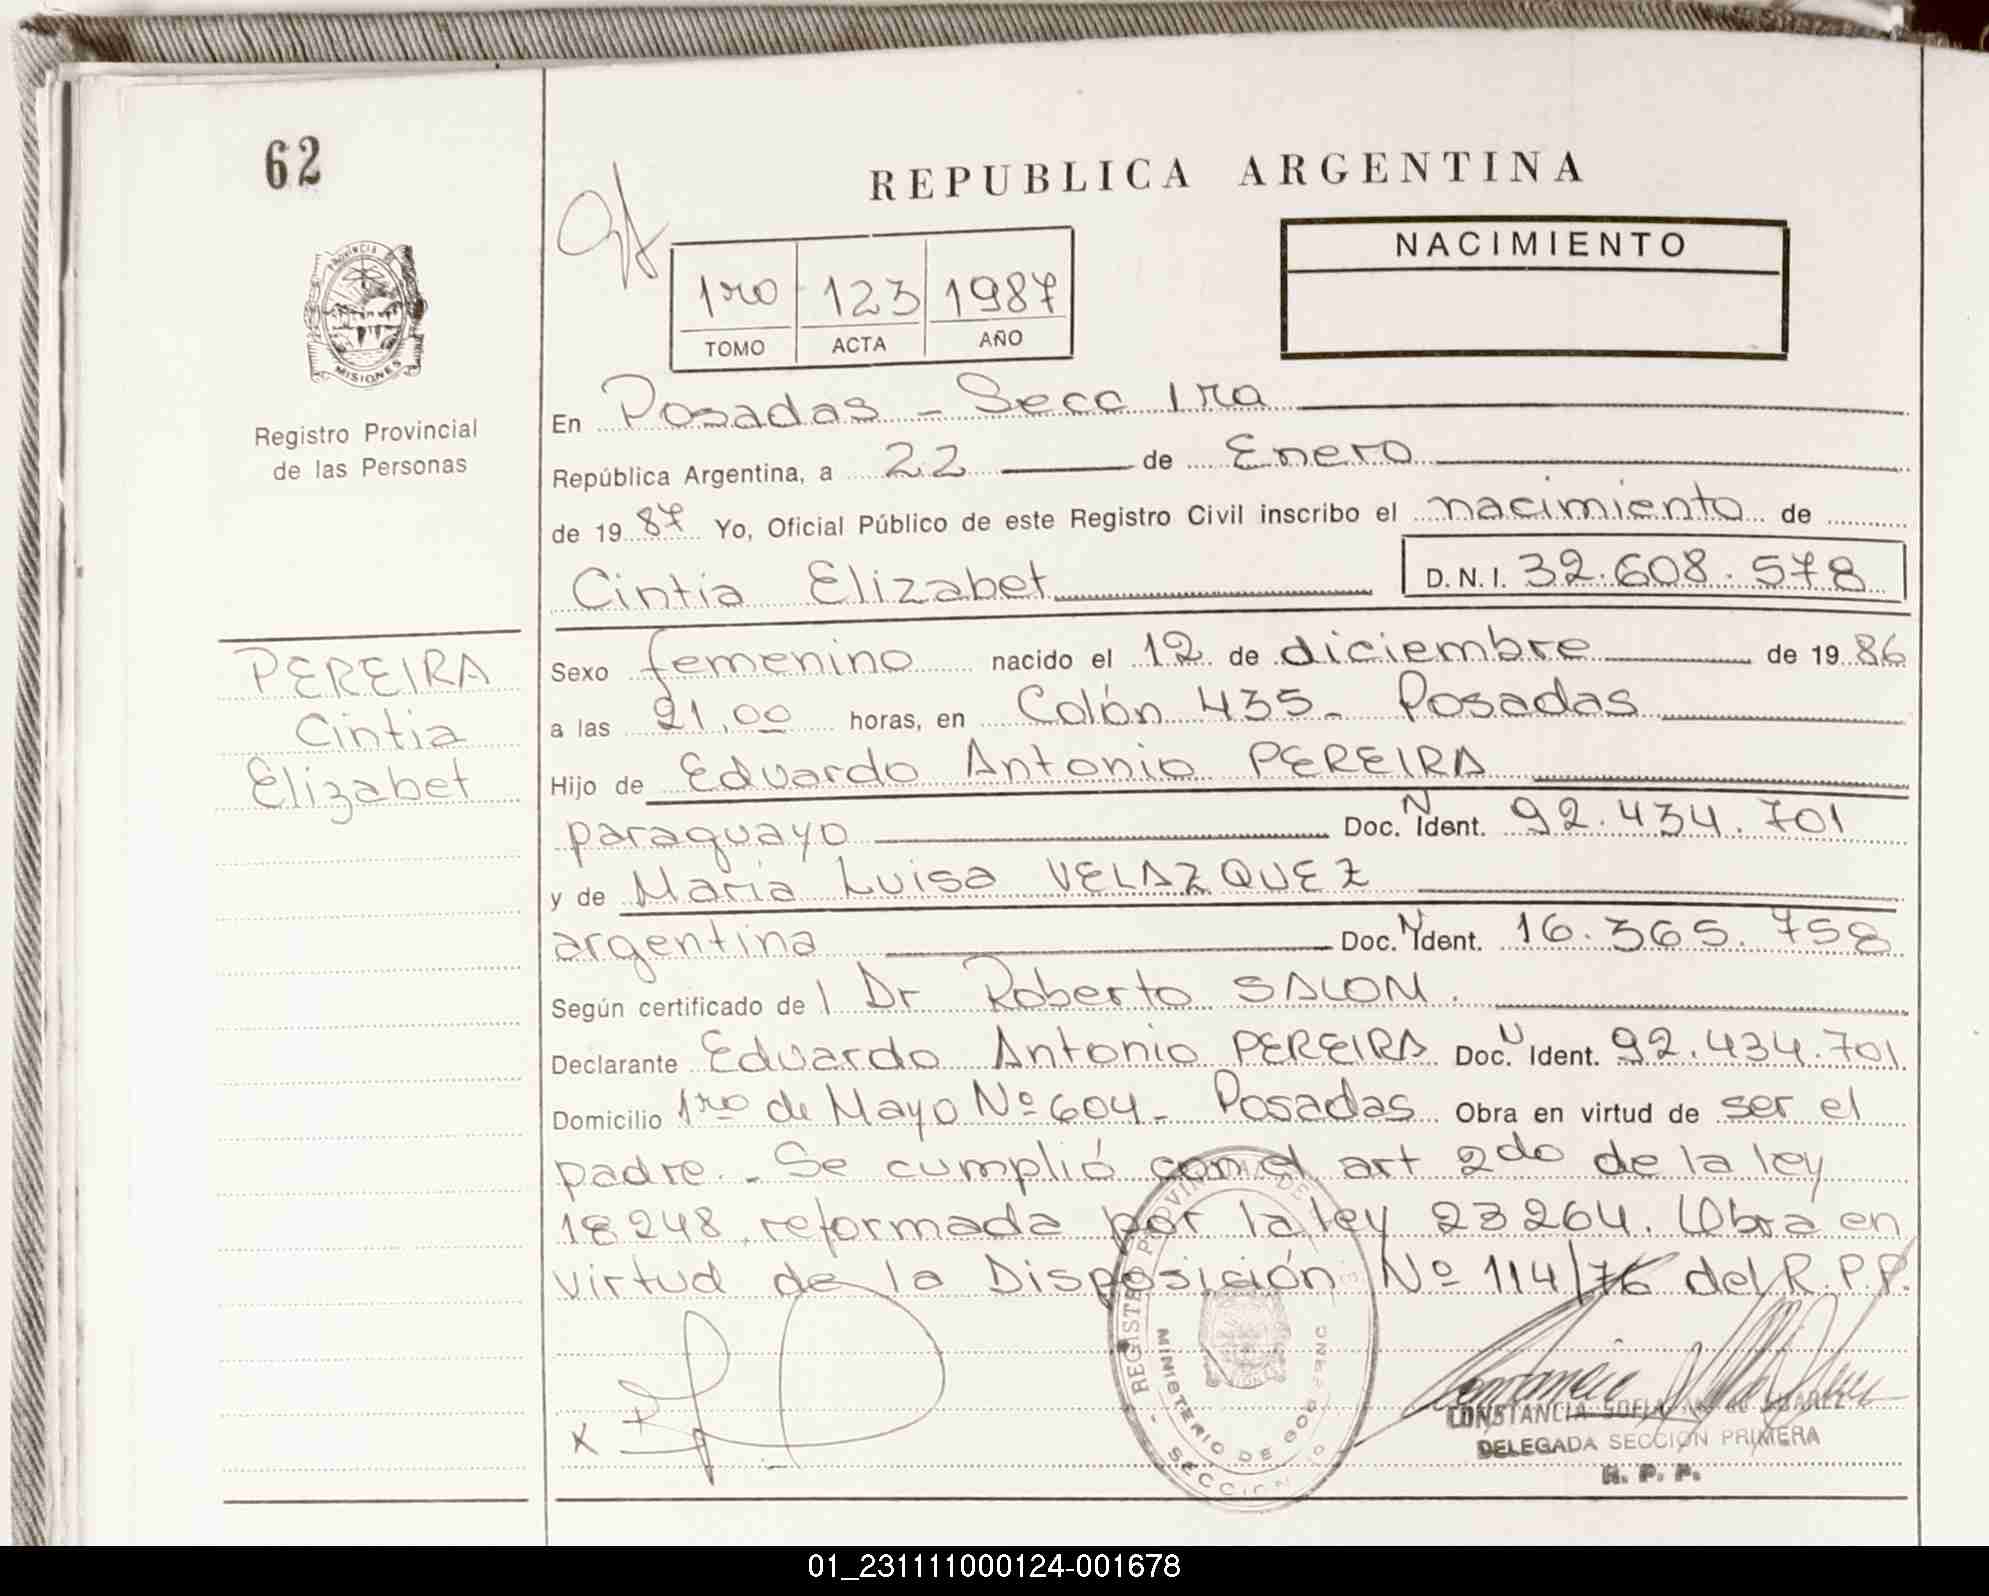 62
REPUBLICA ARGENTINA
NACIMIENTO
1ro 123 1987
TOMO ACTA AÑO
PROVINCIA DE
MISIONES
Registro Provincial
de las Personas
En Posadas - Secc 1ra
República Argentina, a 22 de Enero
de 1987 Yo, Oficial Público de este Registro Civil inscribo el nacimiento de
Cintia Elizabet D.N.I. 32.608.578
PEREIRA
Cintia
Elizabet
Sexo femenino nacido el 12 de diciembre de 1986
a las 21,00 horas, en Colón 435- Posadas
Hijo de Eduardo Antonio PEREIRA
paraguayo Doc. N Ident. 92.434.701
y de María Luisa VELAZQUEZ
argentina Doc. N Ident. 16.365.758
Según certificado de l Dr Roberto SALOM.
Declarante Eduardo Antonio PEREIRA Doc. N Ident. 92.434.701
Domicilio 1ro de Mayo Nº 604- Posadas Obra en virtud de ser el
padre.- Se cumplió con el art 2do de la ley
18248 reformada por la ley 23264. Obra en
virtud de la Disposición Nº 114/76 del R.P.P.
x
REGISTRO PROVINCIAL DE
MINISTERIO DE GOB
SECCION
CONSTANCIA SOFIA SUAREZ
DELEGADA SECCION PRIMERA
R. P. P.
01_231111000124-001678